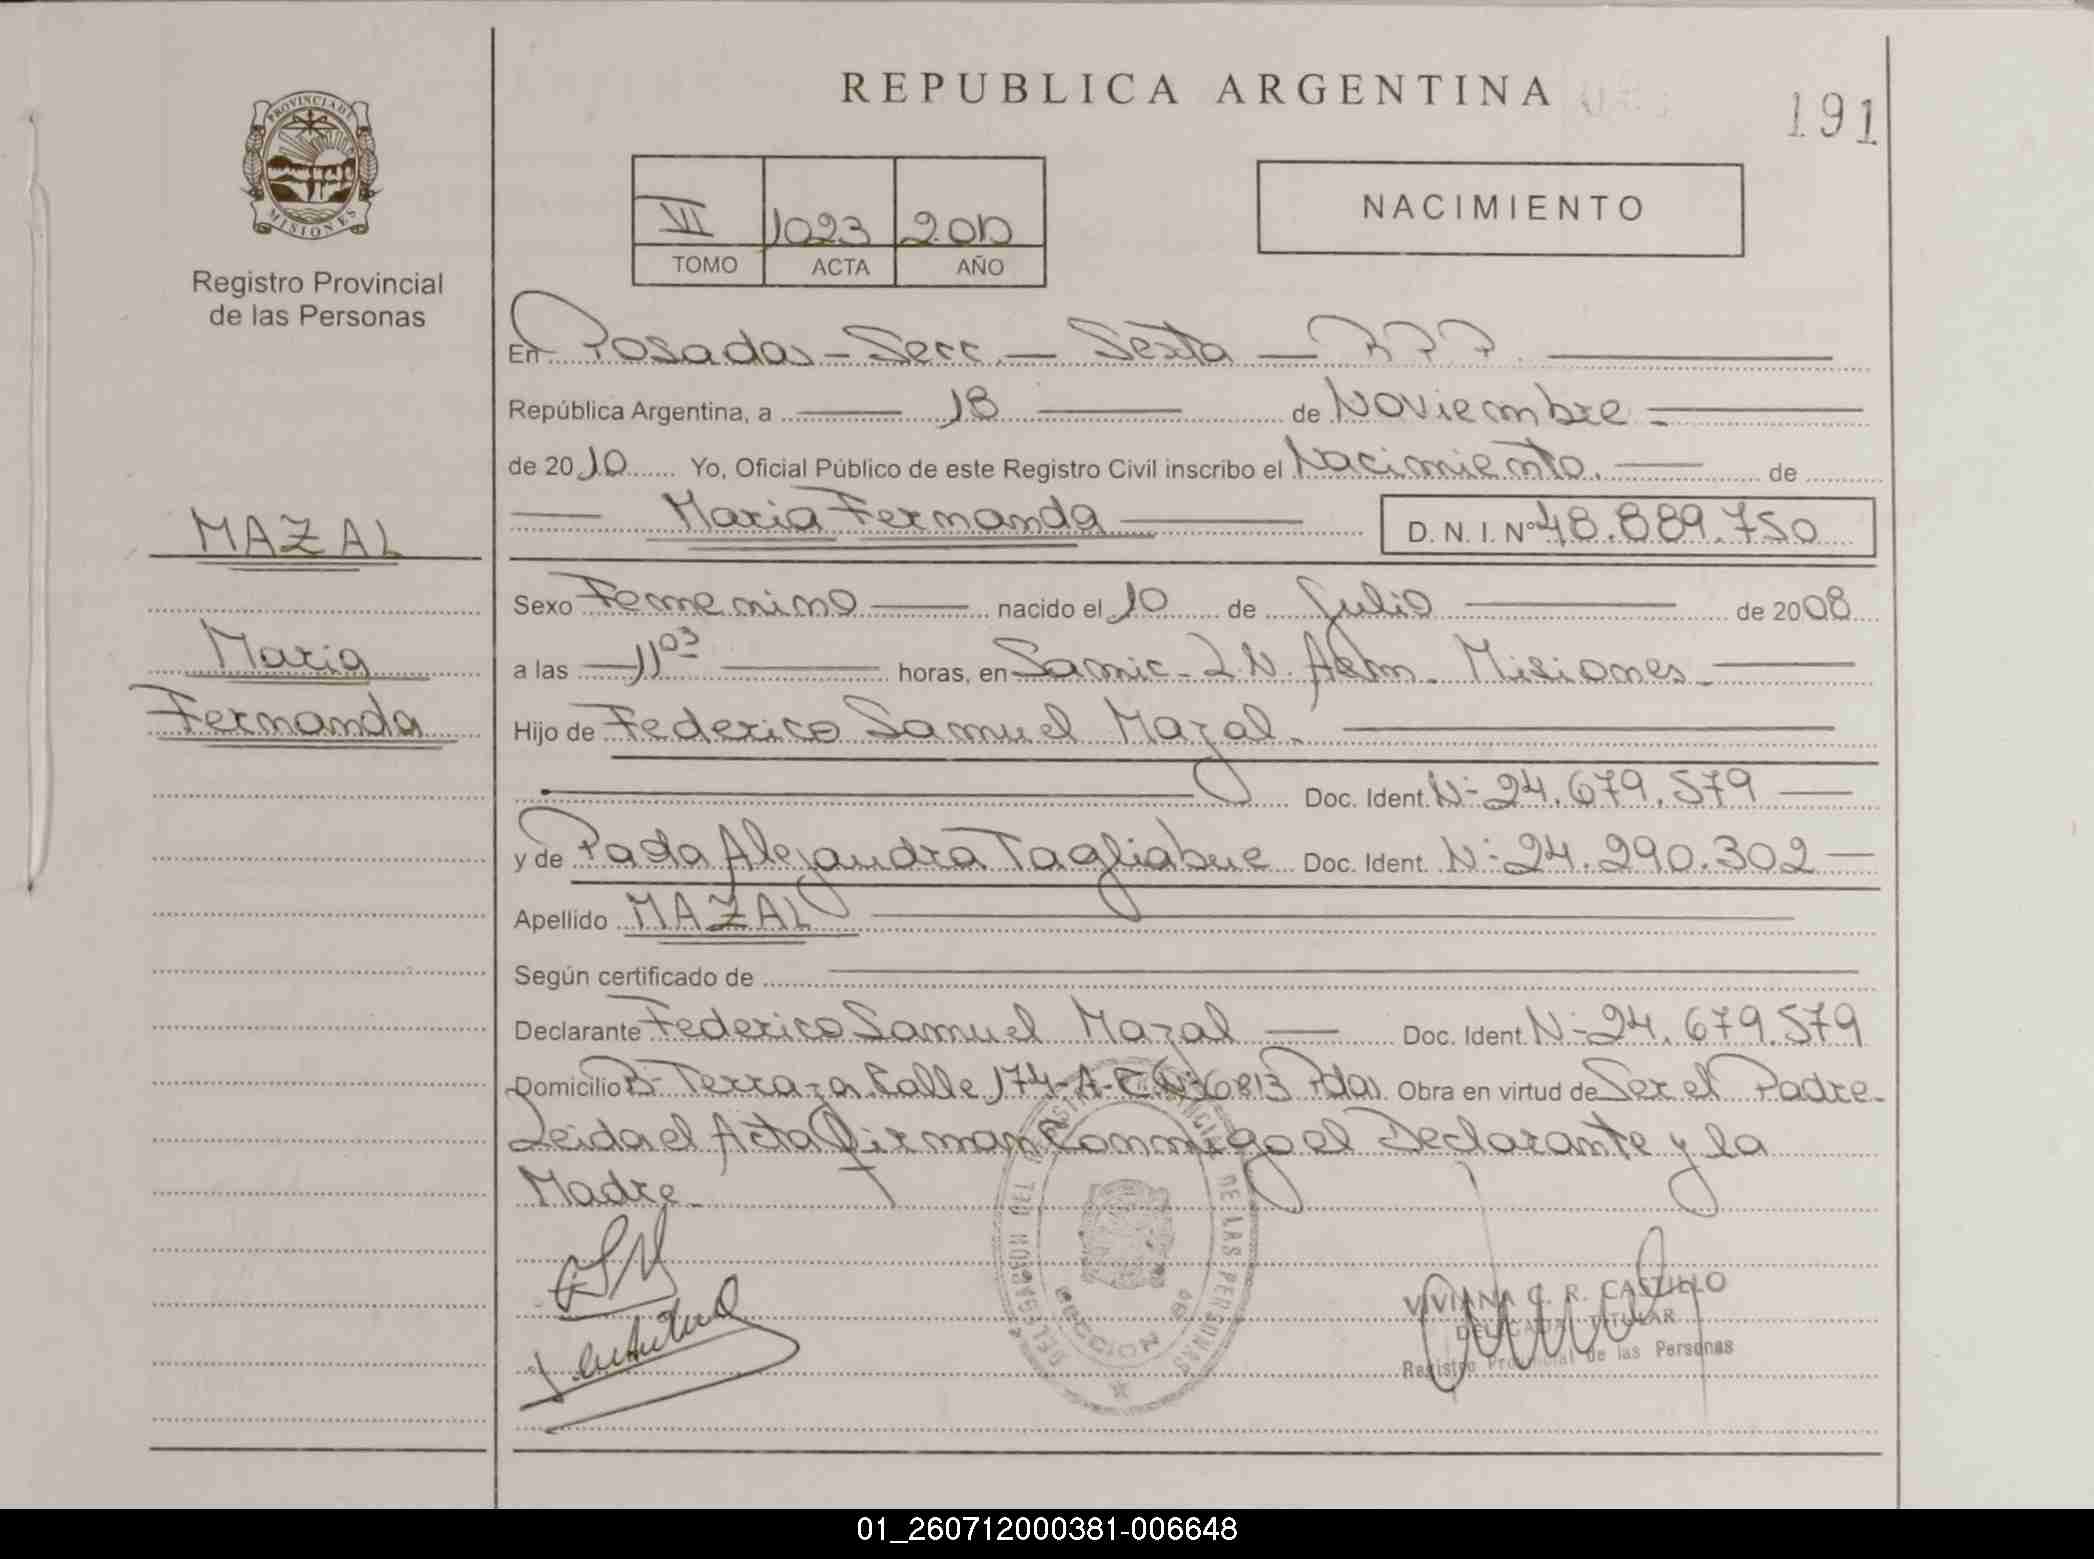 REPUBLICA ARGENTINA
191
PROVINCIA DE
MISIONES
Registro Provincial
de las Personas
VI 1023 2010
TOMO ACTA AÑO
NACIMIENTO
En Posadas - Secc. - Sexta - R P P.
República Argentina, a 18 de Noviembre
de 2010 Yo, Oficial Público de este Registro Civil inscribo el Nacimiento. de
Maria Fernanda D. N. I. Nº 48.889.750
MAZAL
Maria
Fernanda
Sexo Femenino nacido el 10 de Julio de 2008
a las 11 03 horas, en Samic - L.N. Alem - Misiones -
Hijo de Federico Samuel Mazal.
Doc. Ident. Nº 24.679.579
y de Paola Alejandra Tagliabue Doc. Ident. Nº 24.290.302
Apellido MAZAL
Según certificado de
Declarante Federico Samuel Mazal Doc. Ident. Nº 24.679.579
Domicilio Bº Terraza Calle 174-A- Pdas. Obra en virtud de Ser el Padre -
Leida el Acta firman Conmigo el Declarante y la
Madre -
DELEGACION DEL REGISTRO PROVINCIAL DE LAS PERSONAS
SECCION 6º
VIVIANA C. R. CASTILLO
DELEGADA TITULAR
Registro Provincial de las Personas
01_260712000381-006648